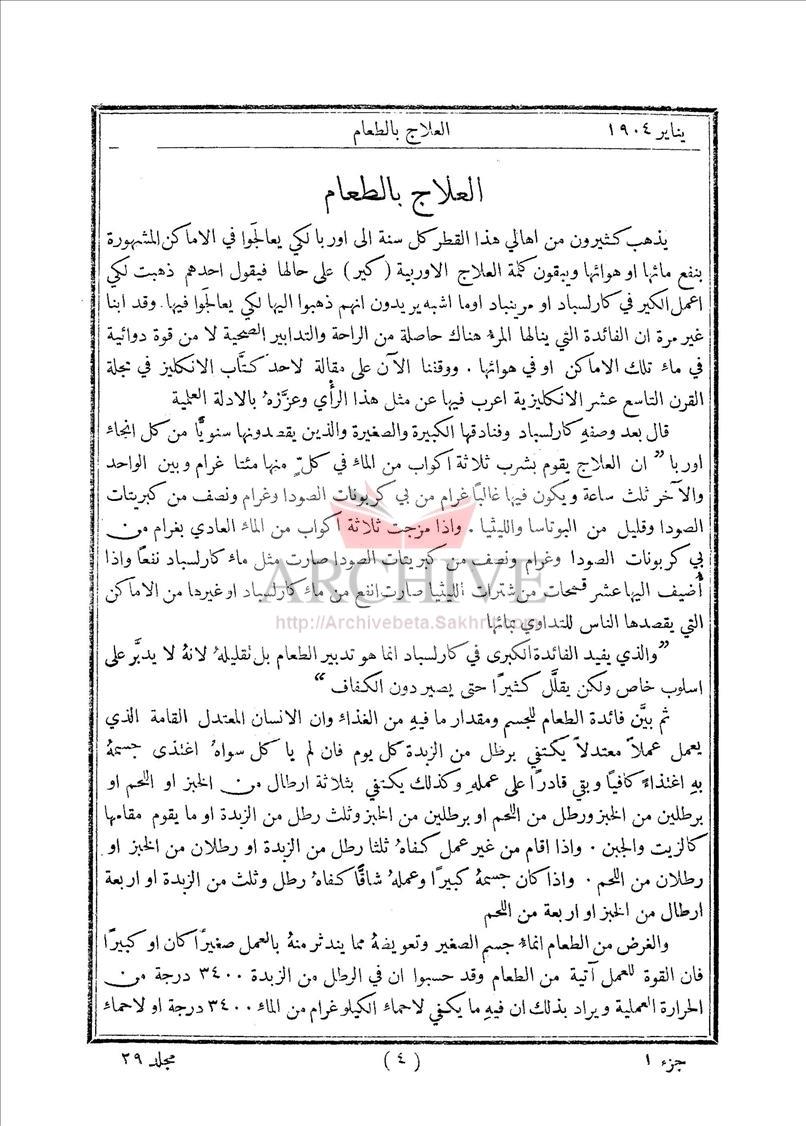 يناير ١٩٠٤ العلاج بالطعام
العلاج بالطعام
يذهب كثيرون من اهالي هذا القطر كل سنة الى اوربا لكي يعالَجوا في الاماكن المشهورة
بنفع مائها او هوائها ويبقون كلمة العلاج الاوربية (كير) على حالها فيقول احدهم ذهبت لكي
اعمل الكير في كارلسباد او مرينباد اوما اشبه يريدون انهم ذهبوا اليها لكي يعالجوا فيها. وقد ابنا
غير مرة ان الفائدة التي ينالها المرءُ هناك حاصلة من الراحة والتدابير الصحية لا من قوة دوائية
في ماء تلك الاماكن او في هوائها . ووقفنا الآن على مقالة لاحد كتَّاب الانكليز في مجلة
القرن التاسع عشر الانكليزية اعرب فيها عن مثل هذا الرأي وعزَّزهُ بالادلة العملية
قال بعد وصفهِ كارلسباد وفنادقها الكبيرة والصغيرة والذين يقصدونها سنويًّا من كل انحاء
اوربا " ان العلاج يقوم بشرب ثلاثة اكواب من الماء في كلٍّ منها مئتا غرام وبين الواحد
والآخر ثلث ساعة ويكون فيها غالبًا غرام من بي كربونات الصودا وغرام ونصف من كبريتات
الصودا وقليل من البوتاسا والليثيا . واذا مزجت ثلاثة اكواب من الماء العادي بغرام من
بي كربونات الصودا وغرام ونصف من كبريتات الصودا صارت مثل ماء كارلسباد نفعًا واذا
أُضيف اليها عشر قمحات من شترات الليثيا صارت انفع من ماء كارلسباد او غيرها من الاماكن
التي يقصدها الناس للتداوي بمائها
ARCHIVE
http://Archivebeta.Sakhrit.com
"والذي يفيد الفائدة الكبرى في كارلسباد انما هو تدبير الطعام بل تقليلهُ لانهُ لا يدبَّر على
اسلوب خاص ولكن يقلَّل كثيرًا حتى يصير دون الكفاف "
ثم بيَّن فائدة الطعام للجسم ومقدار ما فيهِ من الغذاء وان الانسان المعتدل القامة الذي
يعمل عملاً معتدلاً يكتفي برطل من الزبدة كل يوم فان لم يا كل سواهُ اغتذى جسمهُ
بهِ اغتذاءً كافيًا وبقي قادرًا على عملهِ وكذلك يكتفي بثلاثة ارطال من الخبز او اللحم او
برطلين من الخبز ورطل من اللحم او برطلين من الخبز وثلث رطل من الزبدة او ما يقوم مقامها
كالزيت والجبن . واذا اقام من غير عمل كفاهُ ثلثا رطل من الزبدة او رطلان من الخبز او
رطلان من اللحم . واذا كان جسمهُ كبيرًا وعملهُ شاقًّا كفاهُ رطل وثلث من الزبدة او اربعة
ارطال من الخبز او اربعة من اللحم
والغرض من الطعام انماء جسم الصغير وتعويضهُ مما يندثر منهُ بالعمل صغيرًا كان او كبيرًا
فان القوة للعمل آتية من الطعام وقد حسبوا ان في الرطل من الزبدة ٣٤٠٠ درجة من
الحرارة العملية ويراد بذلك ان فيهِ ما يكفي لاحماء الكيلو غرام من الماء ٣٤٠٠ درجة او لاحماء
جزء ١ (٤) مجلد ٢٩